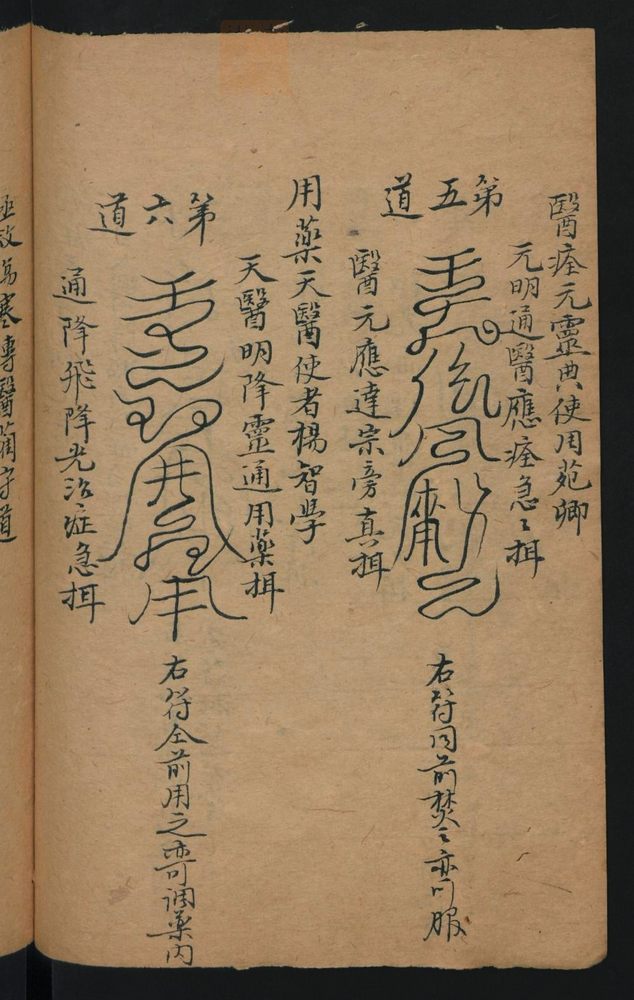 醫痊元靈典使用苑卿
元明通醫應痊急〻揖
第五道
醫元應達宗旁真揖
右符同前焚之亦可服
用藥天醫使者楊智學
天醫明降靈通用藥揖
第六道
通降飛降光治症急揖
右符仝前用之亦可調藥內
傷寒專醫